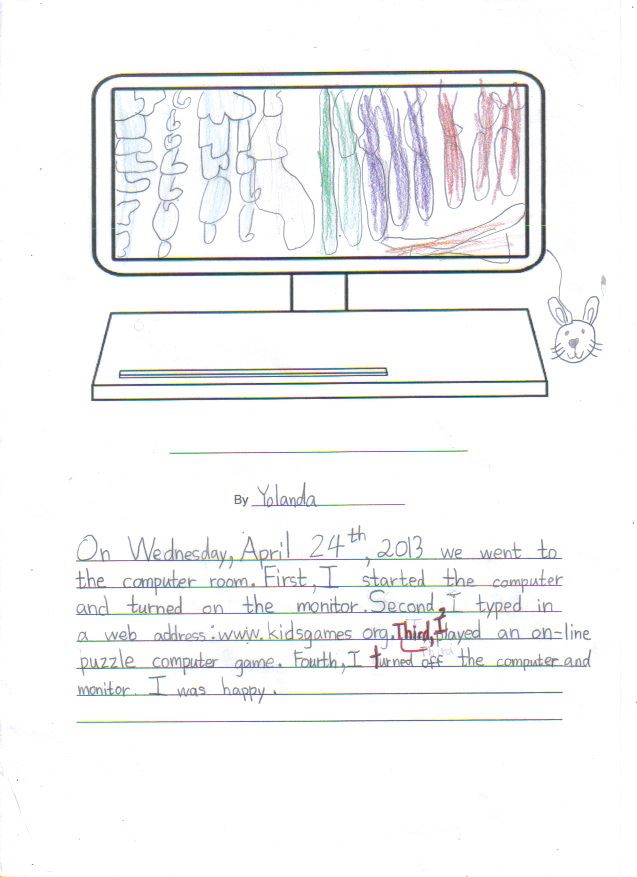 By Yolanda
On Wednesday, April 24th, 2013 we went to
the computer room. First, I started the computer
and turned on the monitor. Second, I typed in
a web address: www.kidsgames org. Third, I played an on-line
puzzle computer game. Fourth, I turned off the computer and
monitor. I was happy.